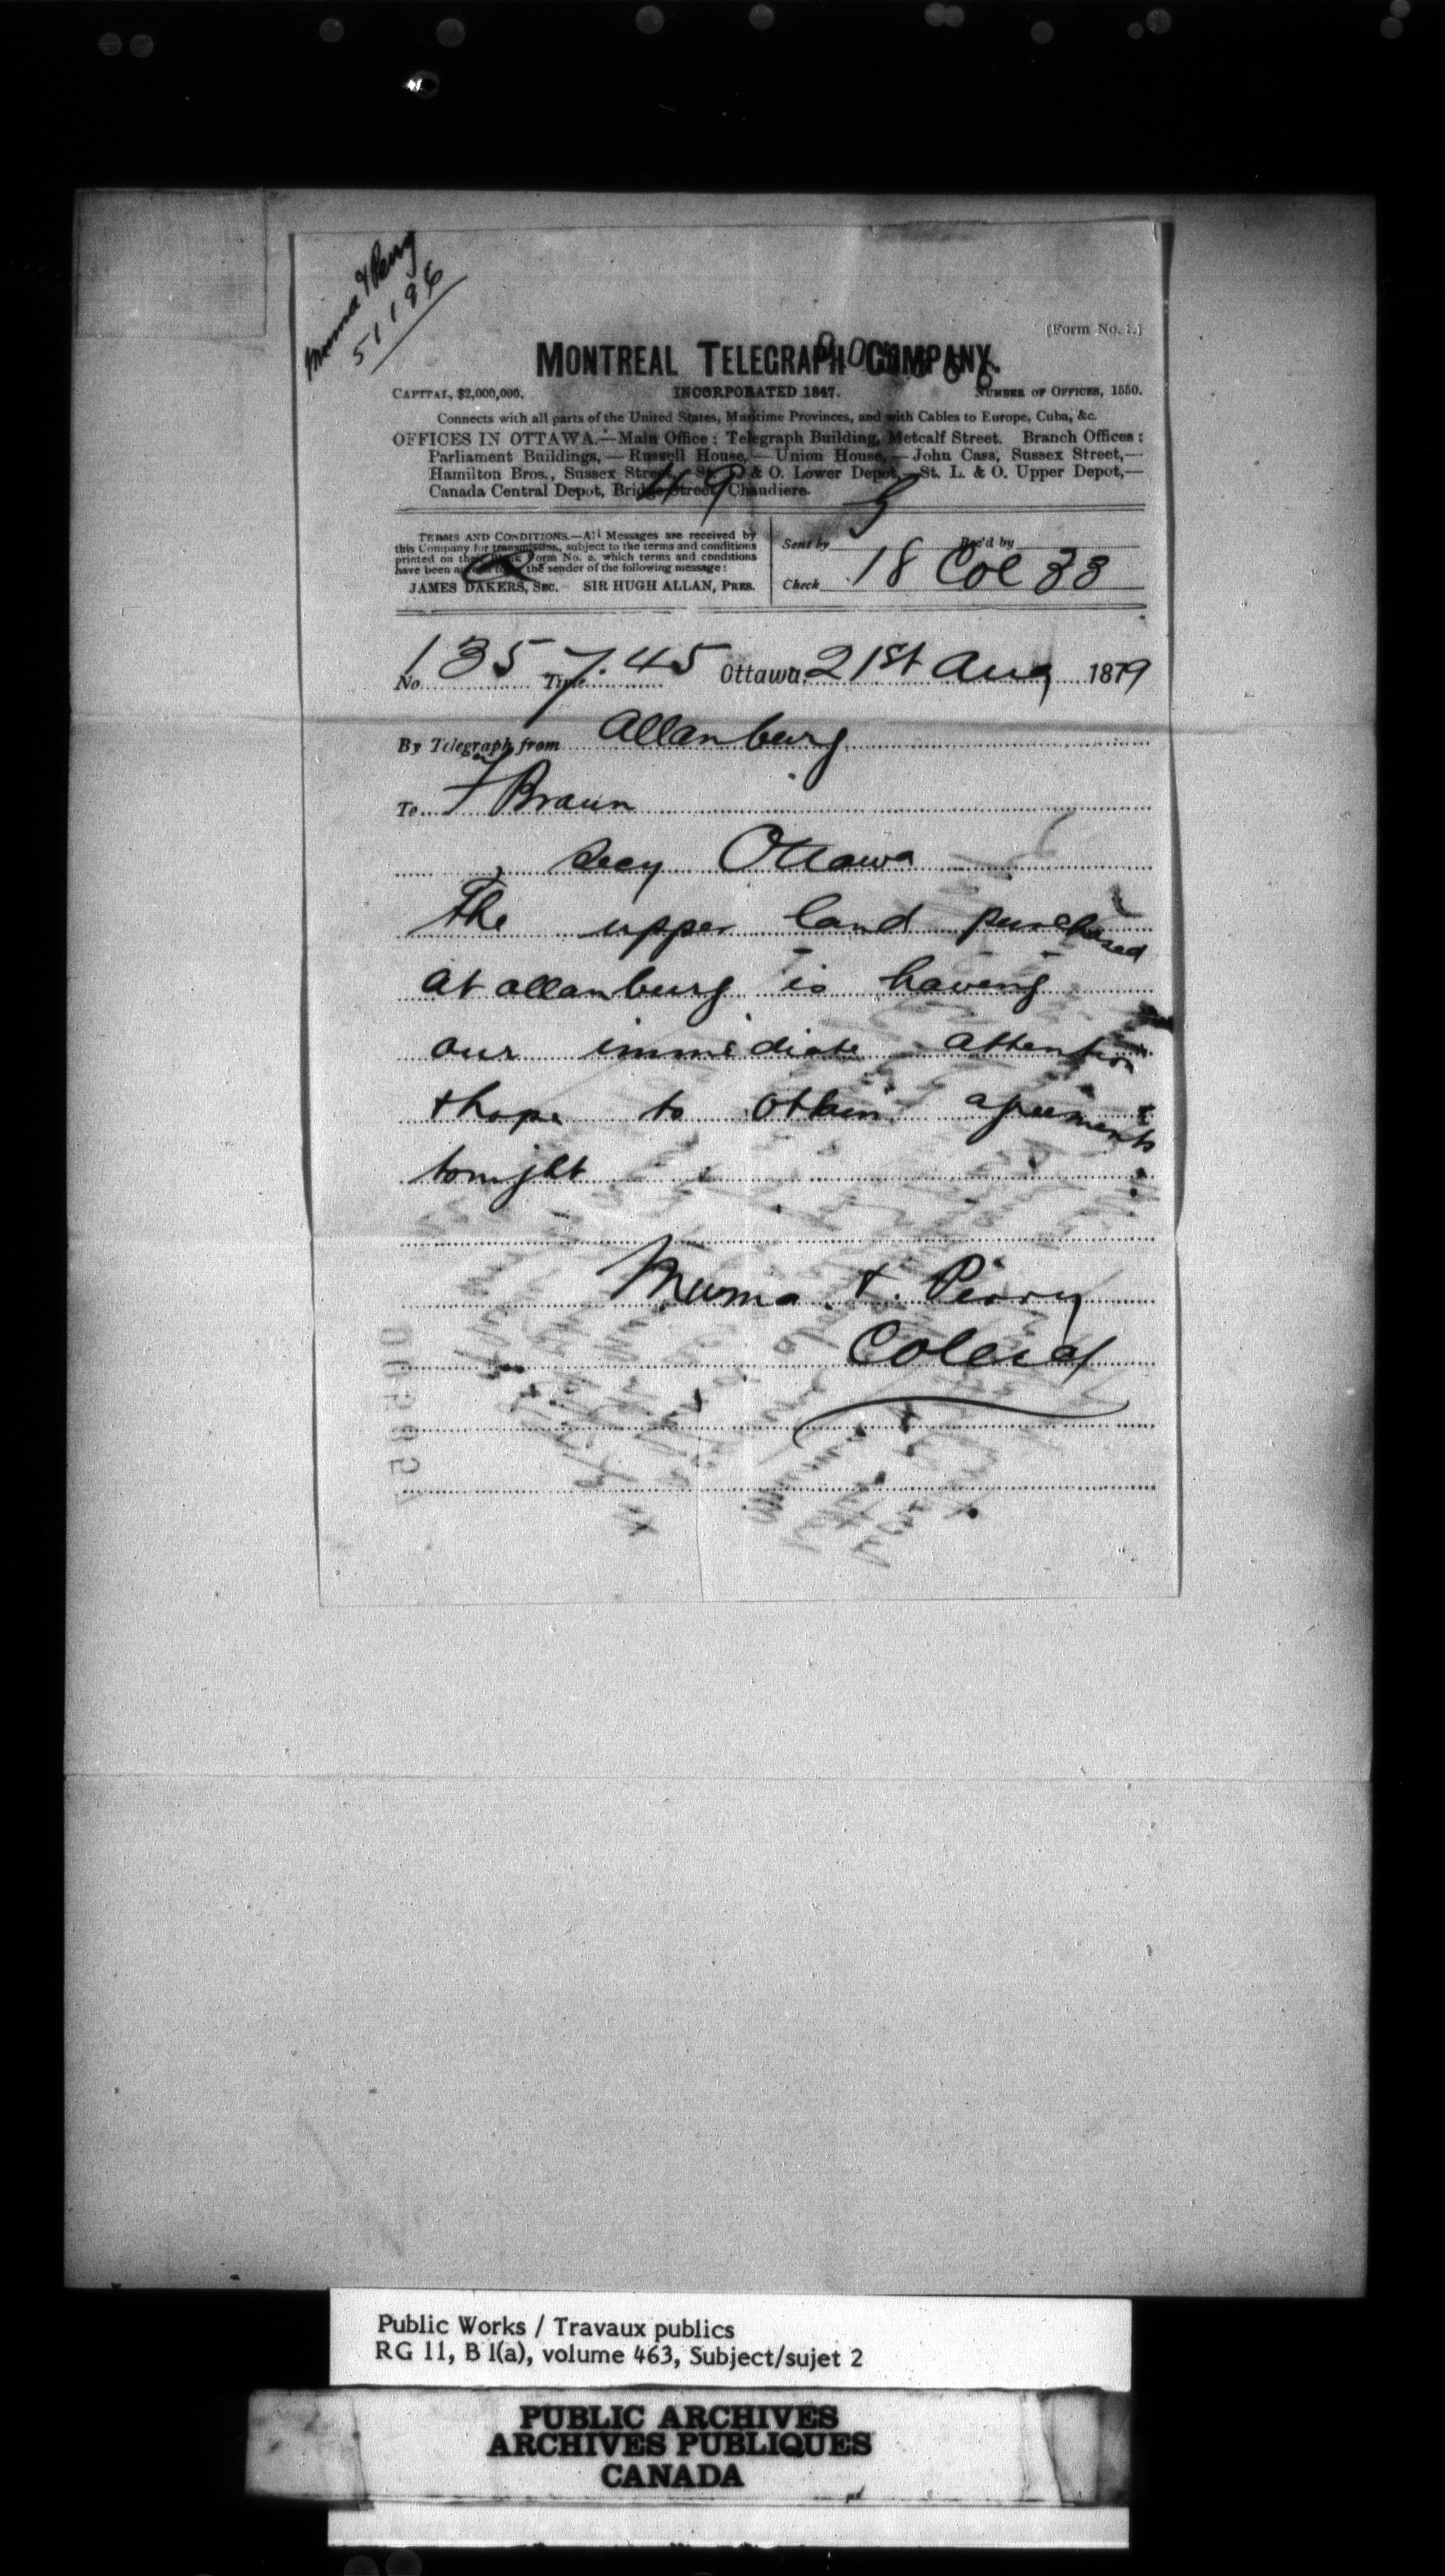 Muma & Perry
51196
[Form No. 2.]
MONTREAL TELEGRAPH COMPANY.
CAPITAL, $2,000,000. INCORPORATED 1847. NUMBER OF OFFICES, 1550.
Connects with all parts of the United States, Maritime Provinces, and with Cables to Europe, Cuba, &c.
OFFICES IN OTTAWA.—Main Office: Telegraph Building, Metcalf Street. Branch Offices:
Parliament Buildings,—Russell House,—Union House,—John Cass, Sussex Street,—
Hamilton Bros., Sussex Street,—St. L. & O. Lower Depot,—St. L. & O. Upper Depot,—
Canada Central Depot, Bridge Street, Chaudiere.
49
TERMS AND CONDITIONS.—All Messages are received by
this Company for transmission, subject to the terms and conditions
printed on their Blank Form No. 2, which terms and conditions
have been agreed to by the sender of the following message:
JAMES DAKERS, SEC. SIR HUGH ALLAN, PRES.
Sent by Rec'd by
Check 18 Col 33
No. 135 Time 7.45 Ottawa, 21st Aug 1879
By Telegraph from Allanburg
To F Braun
Secy Ottawa
The upper land purchased
at allanburg is having
our immediate attention
& hope to obtain agreements
tonight
Muma & Perry
Public Works / Travaux publics
RG 11, B 1(a), volume 463, Subject/sujet 2
PUBLIC ARCHIVES
ARCHIVES PUBLIQUES
CANADA